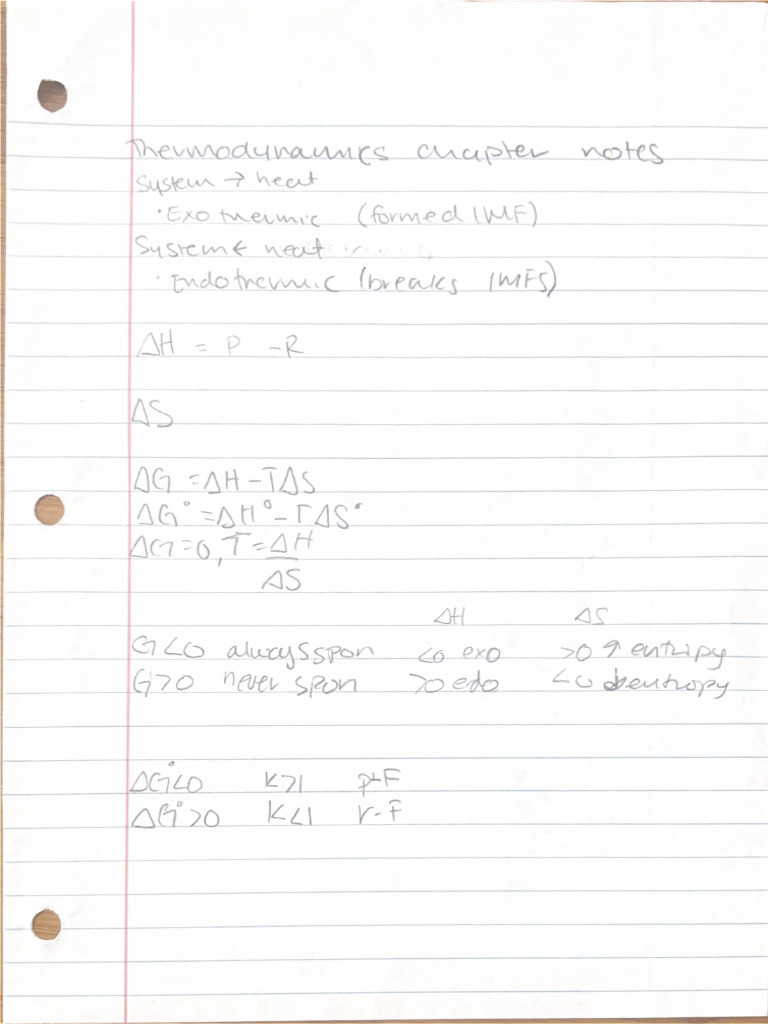 Thermodynamics chapter notes
System → heat
· Exothermic (formed IMF)
System ← heat
· Endothermic (breaks IMFS)
ΔH = P - R
ΔS
ΔG = ΔH - TΔS
ΔG° = ΔH° - TΔS°
ΔG = 0, T = ΔH
ΔS
ΔH ΔS
G<0 always spon <0 exo >0 ↑ entripy
G>0 never spon >0 edo <0 entropy
ΔG°<0 K>1 F
ΔG°>0 K<1 r-F